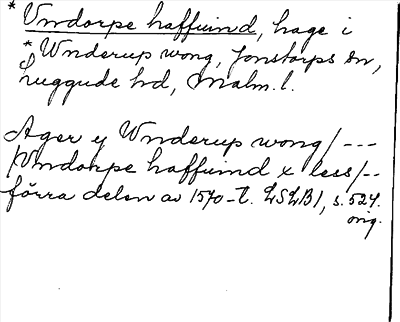 * Vndorpe haffuind, hage i
* Wnderup wong, Jonstorps sn,
Luggude hd, Malm. l.
Ager y Wnderup wong/---
/Vndorpe haffuind x less/--
förra delen av 1570-t. LSLB1, s. 524.
orig.